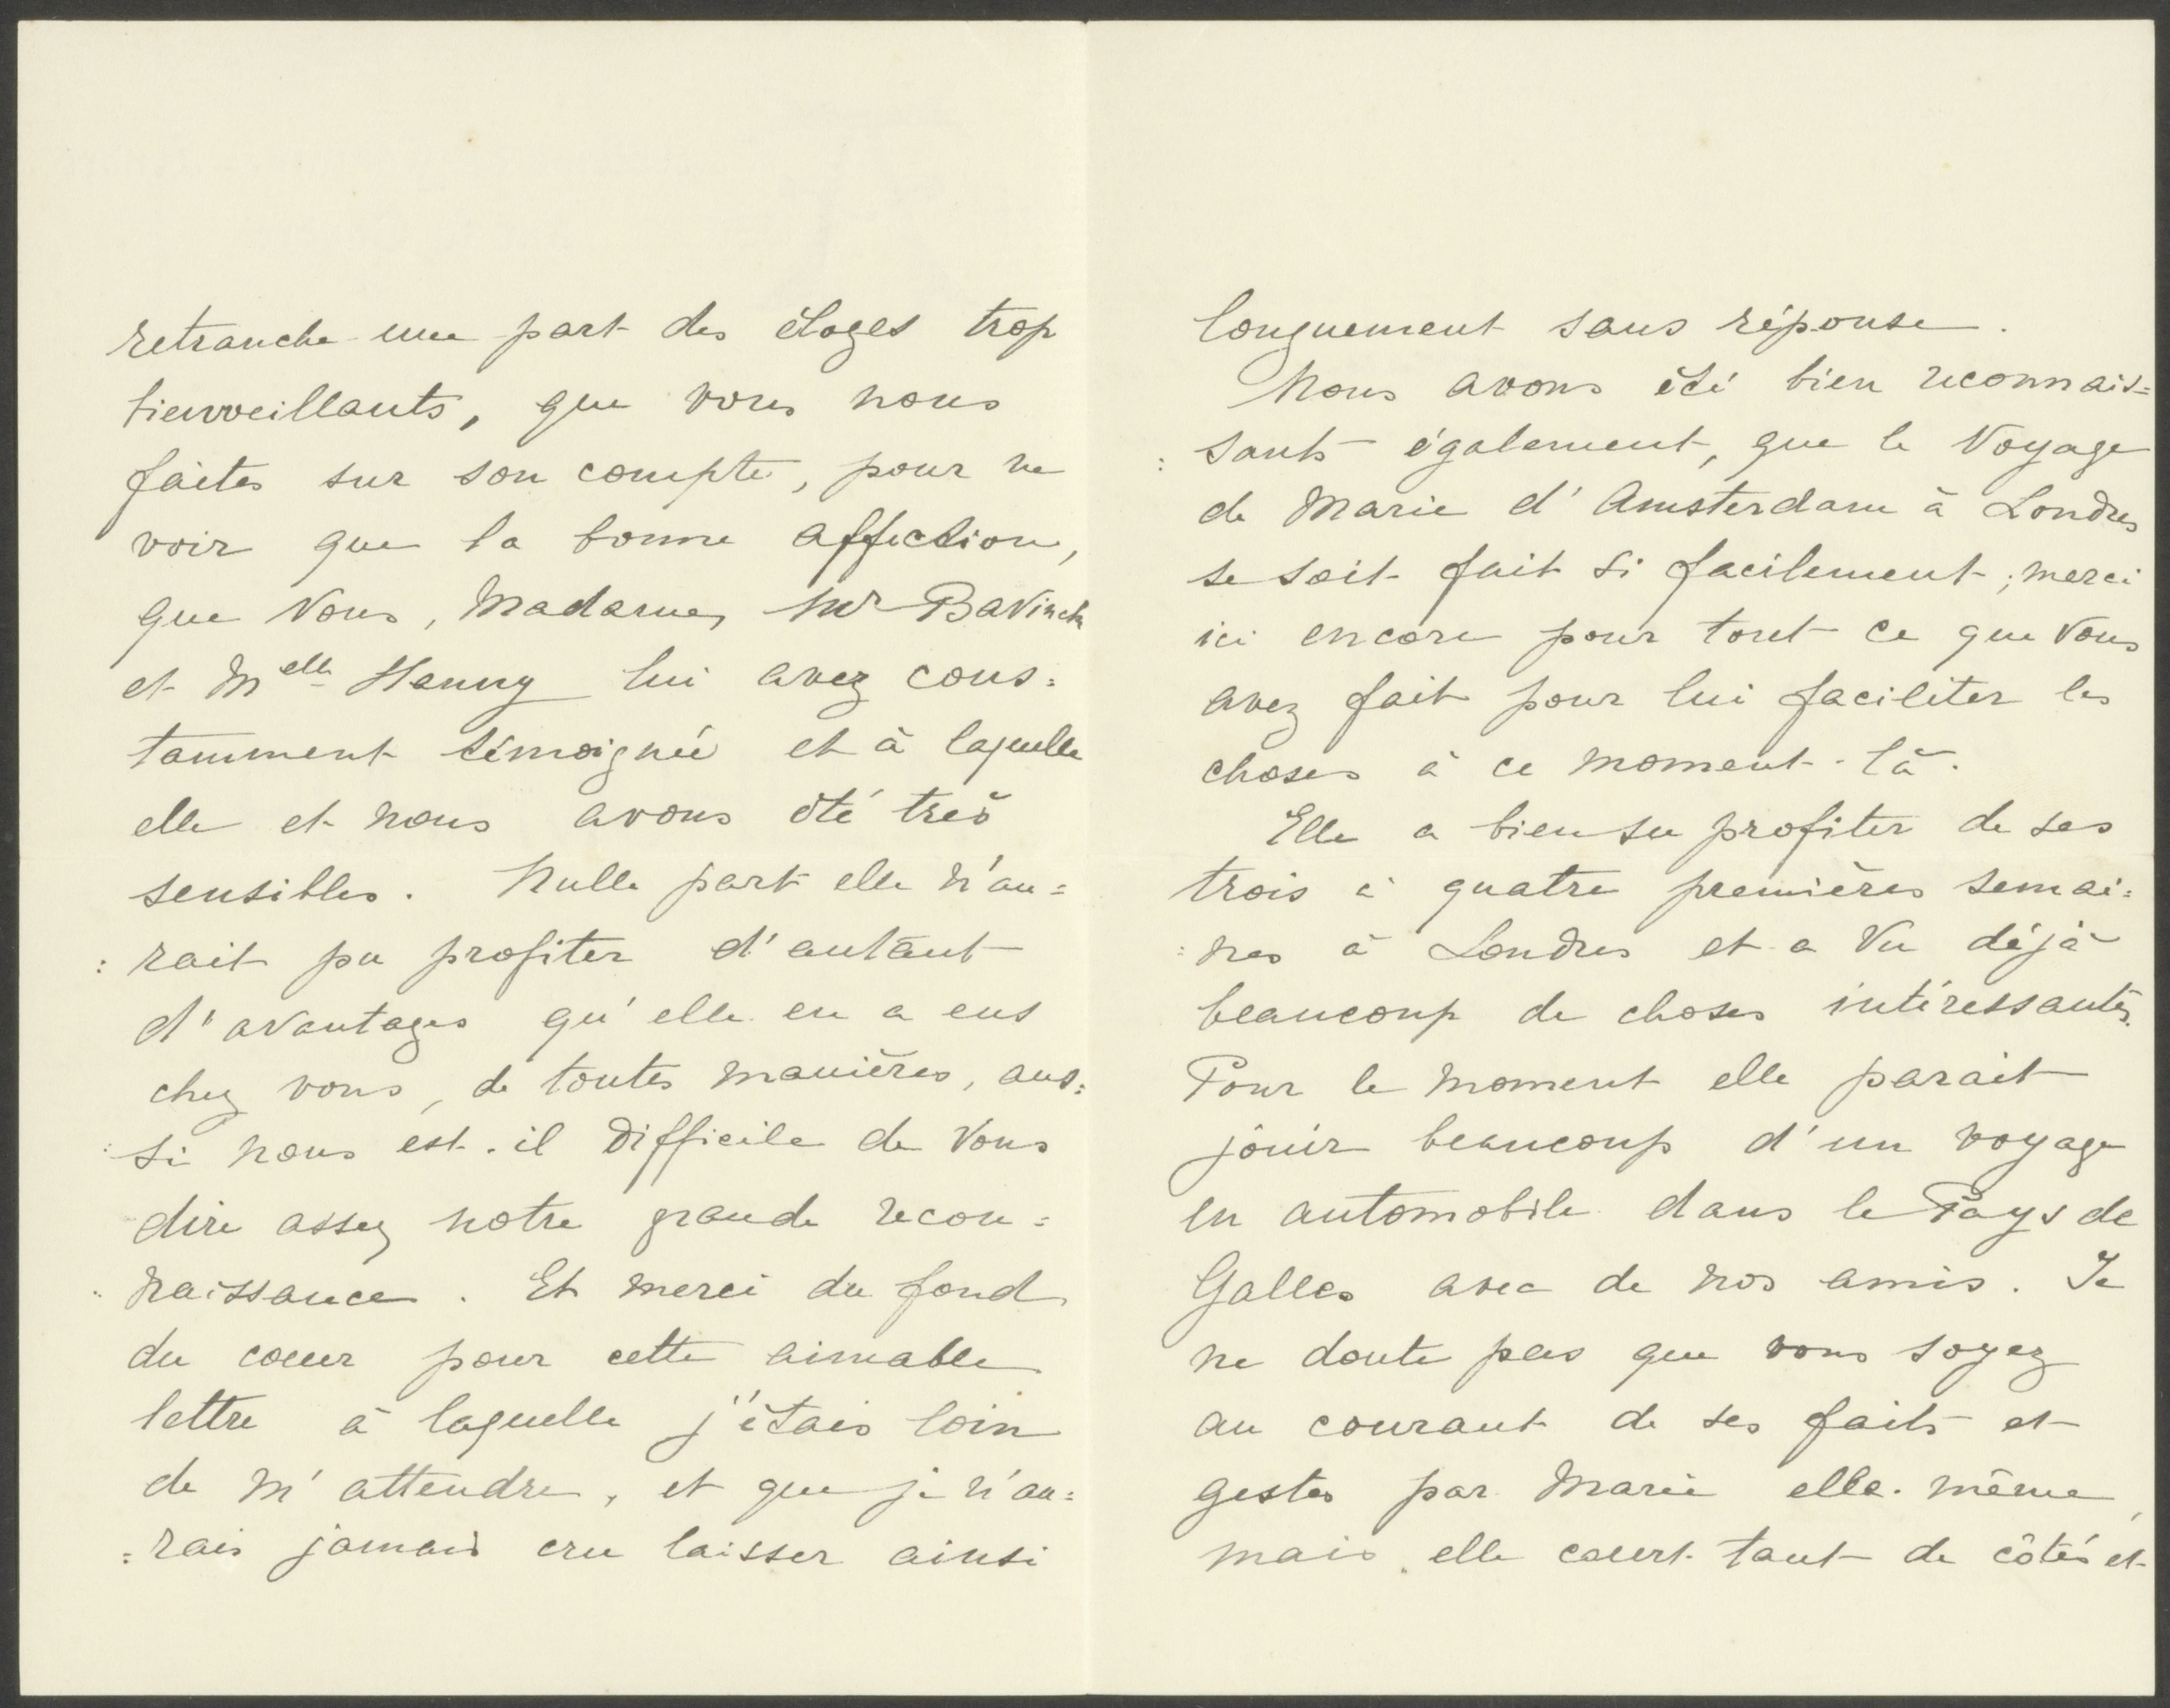 retranche une part des éloges trop
bienveillants, que vous nous
faites sur son compte, pour ne
voir que la bonne affection,
que Vous, Madame, Mr Bavinck
et Melle Hanny lui avez cons:
tamment témoignée et à laquelle
elle et nous avons été très
sensibles. Nulle part elle n'au=
:rait pu profiter d'autant
d'avantages qu'elle en a eus
chez vous, de toutes manières, aus:
:si nous est-il difficile de Vous
dire assez notre grande recon=
:naissance. Et merci du fond
du coeur pour cette aimable
lettre à laquelle j'étais loin
de m'attendre, et que je n'au=
:rais jamais cru laisser ainsi
longuement sans réponse.
Nous avons été bien reconnais=
:sants également, que le Voyage
de Marie d'Amsterdam à Londres
se soit fait si facilement; merci
ici encore pour tout ce que Vous
avez fait pour lui faciliter les
choses à ce moment-là.
Elle a bien su profiter de ses
trois à quatre premières semai:
:nes à Londres et a Vu déjà
beaucoup de choses intéressantes.
Pour le moment elle parait
jouir beaucoup d'un voyage
en automobile dans le Pays de
Galles avec de nos amis. Je
ne doute pas que vous soyez
au courant de ses faits et
gestes par Marie elle-même,
mais elle court tant de côtés et